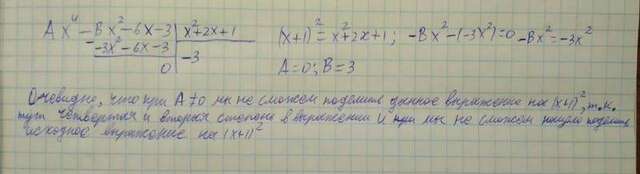 Ax⁴ - Bx² - 6x - 3 | x² + 2x + 1
-3x² - 6x - 3 | -3
0
(x+1)² = x² + 2x + 1; -Bx² - (-3x²) = 0 -Bx² = -3x²
A = 0; B = 3
Очевидно, что при A ≠ 0 мы не сможем поделить данное выражение на (x+1)², т.к.
тут четвертая и вторая степени в выражении и при мы не сможем поделить
исходное выражение на (x+1)²